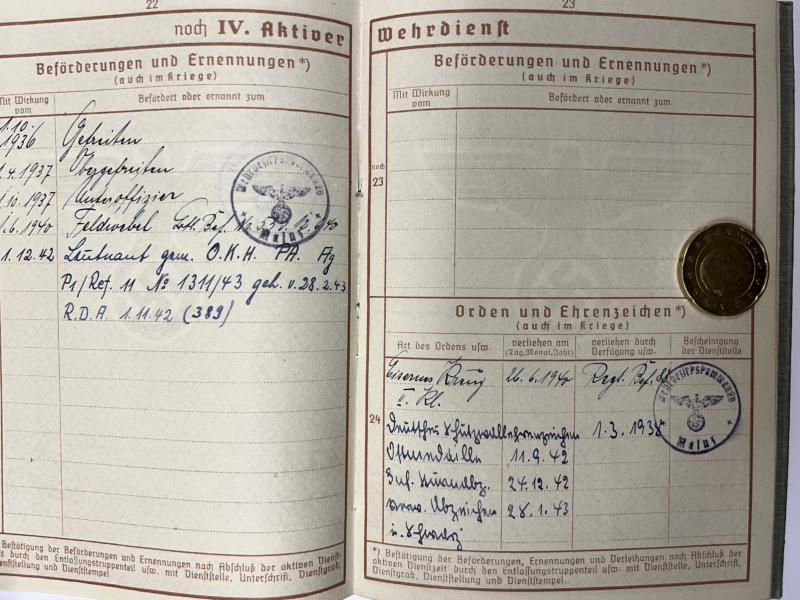 22
noch IV. Aktiver
Beförderungen und Ernennungen*)
(auch im Kriege)
Mit Wirkung vom
Befördert oder ernannt zum
1.10. 1936 Gefreiten
1.4.1937 Obergefreiten
1.10.1937 Unteroffizier
1.6.1940 Feldwebel
1.12.42 Leutnant gem. O.K.H. PA. Ag
P1/Ref. 11 No 1311/43 geh. v. 28.2.43
R.D.A. 1.11.42 (389)
Wehrbezirkskommando
Mainz
Bestätigung der Beförderungen und Ernennungen nach Abschluß der aktiven Dienst-
durch den Entlassungstruppenteil usw. mit Dienststelle, Unterschrift, Dienstgrad,
Dienststellung und Dienststempel
23
Wehrdienst
Beförderungen und Ernennungen*)
(auch im Kriege)
Mit Wirkung vom
Befördert oder ernannt zum
noch
23
Orden und Ehrenzeichen*)
(auch im Kriege)
Art des Ordens usw.
verliehen am
(Tag, Monat, Jahr)
verliehen durch
Verfügung usw.
Bescheinigung
der Dienststelle
Eisernes Kreuz 26.6.1940 Regt. Bef.
II. Kl.
24
Deutsches Schutzwallehrenzeichen 1.3.1938
Ostmedaille 11.9.42
Inf. Sturmabz. 24.12.42
Verw. Abzeichen 28.1.43
i. Schwarz
Wehrbezirkskommando
Mainz
*) Bestätigung der Beförderungen, Ernennungen und Verleihungen nach Abschluß der
aktiven Dienstzeit durch den Entlassungstruppenteil usw. mit Dienststelle, Unterschrift,
Dienstgrad, Dienststellung und Dienststempel.